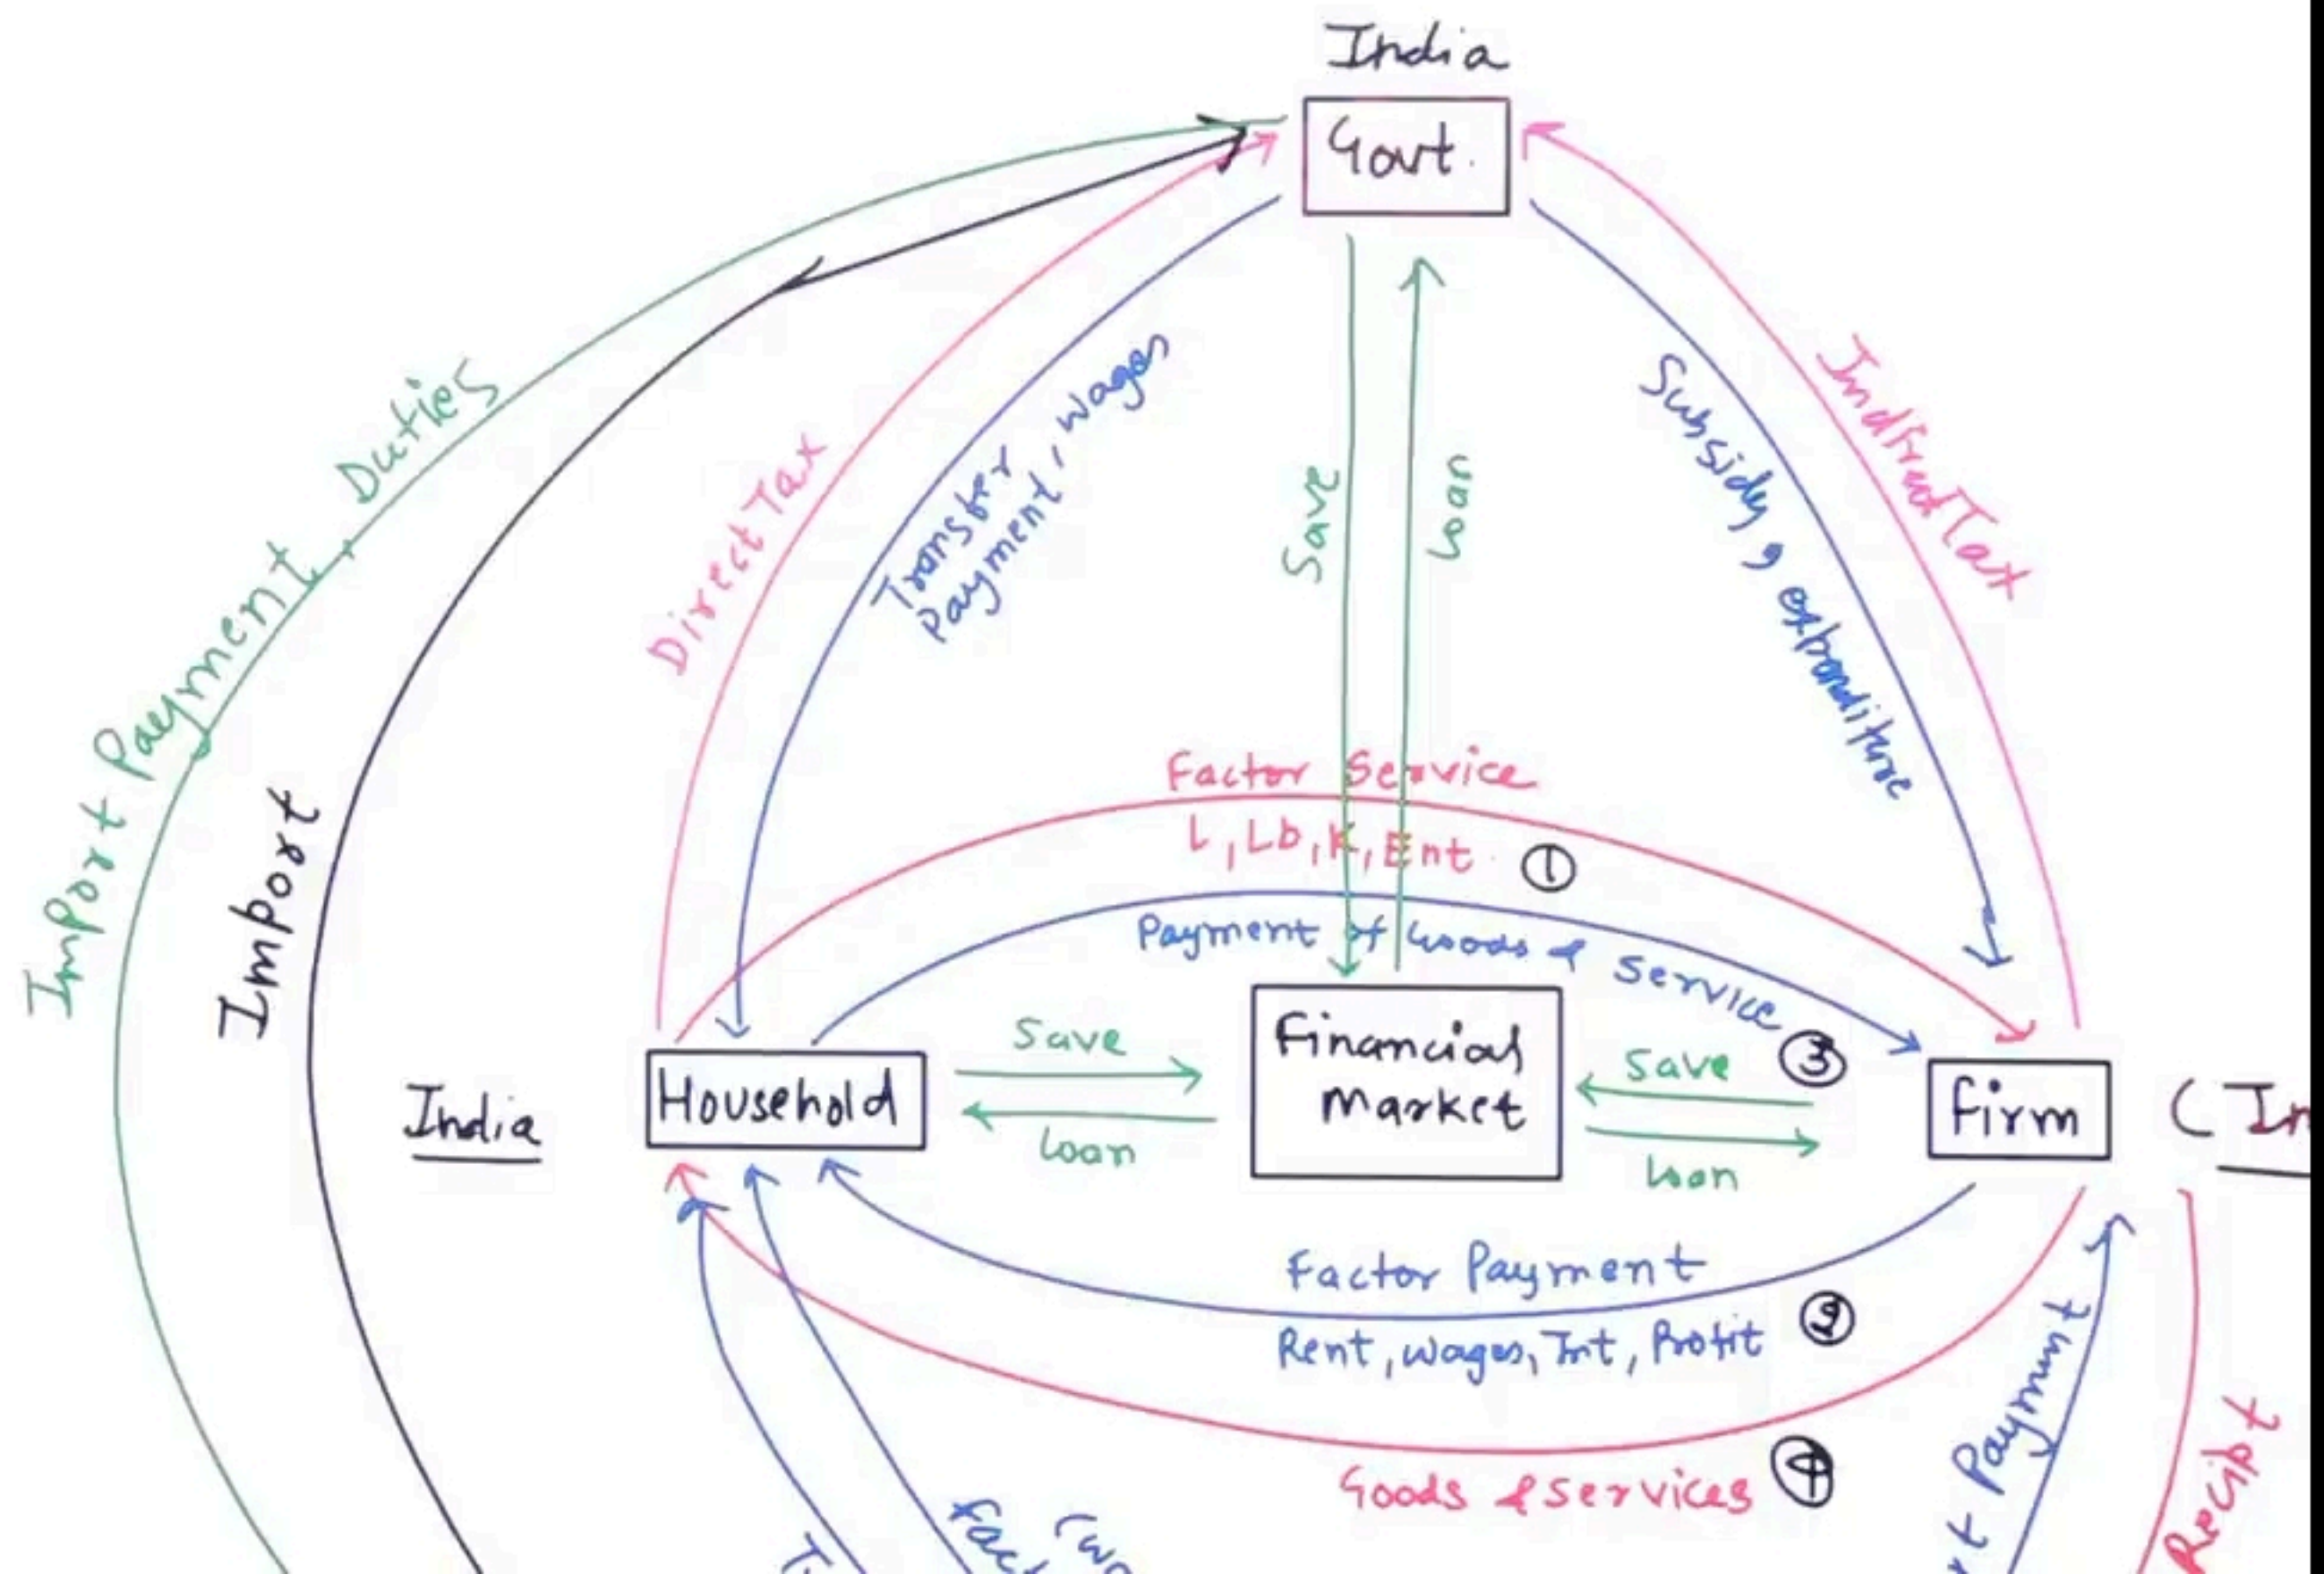 India
Govt.
Import Payment, Duties
Import
Direct Tax
Transfer
Payment, wages
Save
Loan
Subsidy, expanditure
Indirect Tax
Factor Service
L, Lb, K, Ent
①
Payment of Goods & Service
③
India
Household
Save
Loan
Financial
Market
Save
Loan
Firm
(In
Factor Payment
Rent, wages, Int, Profit
②
Goods & Services
④
Payment
Recipt